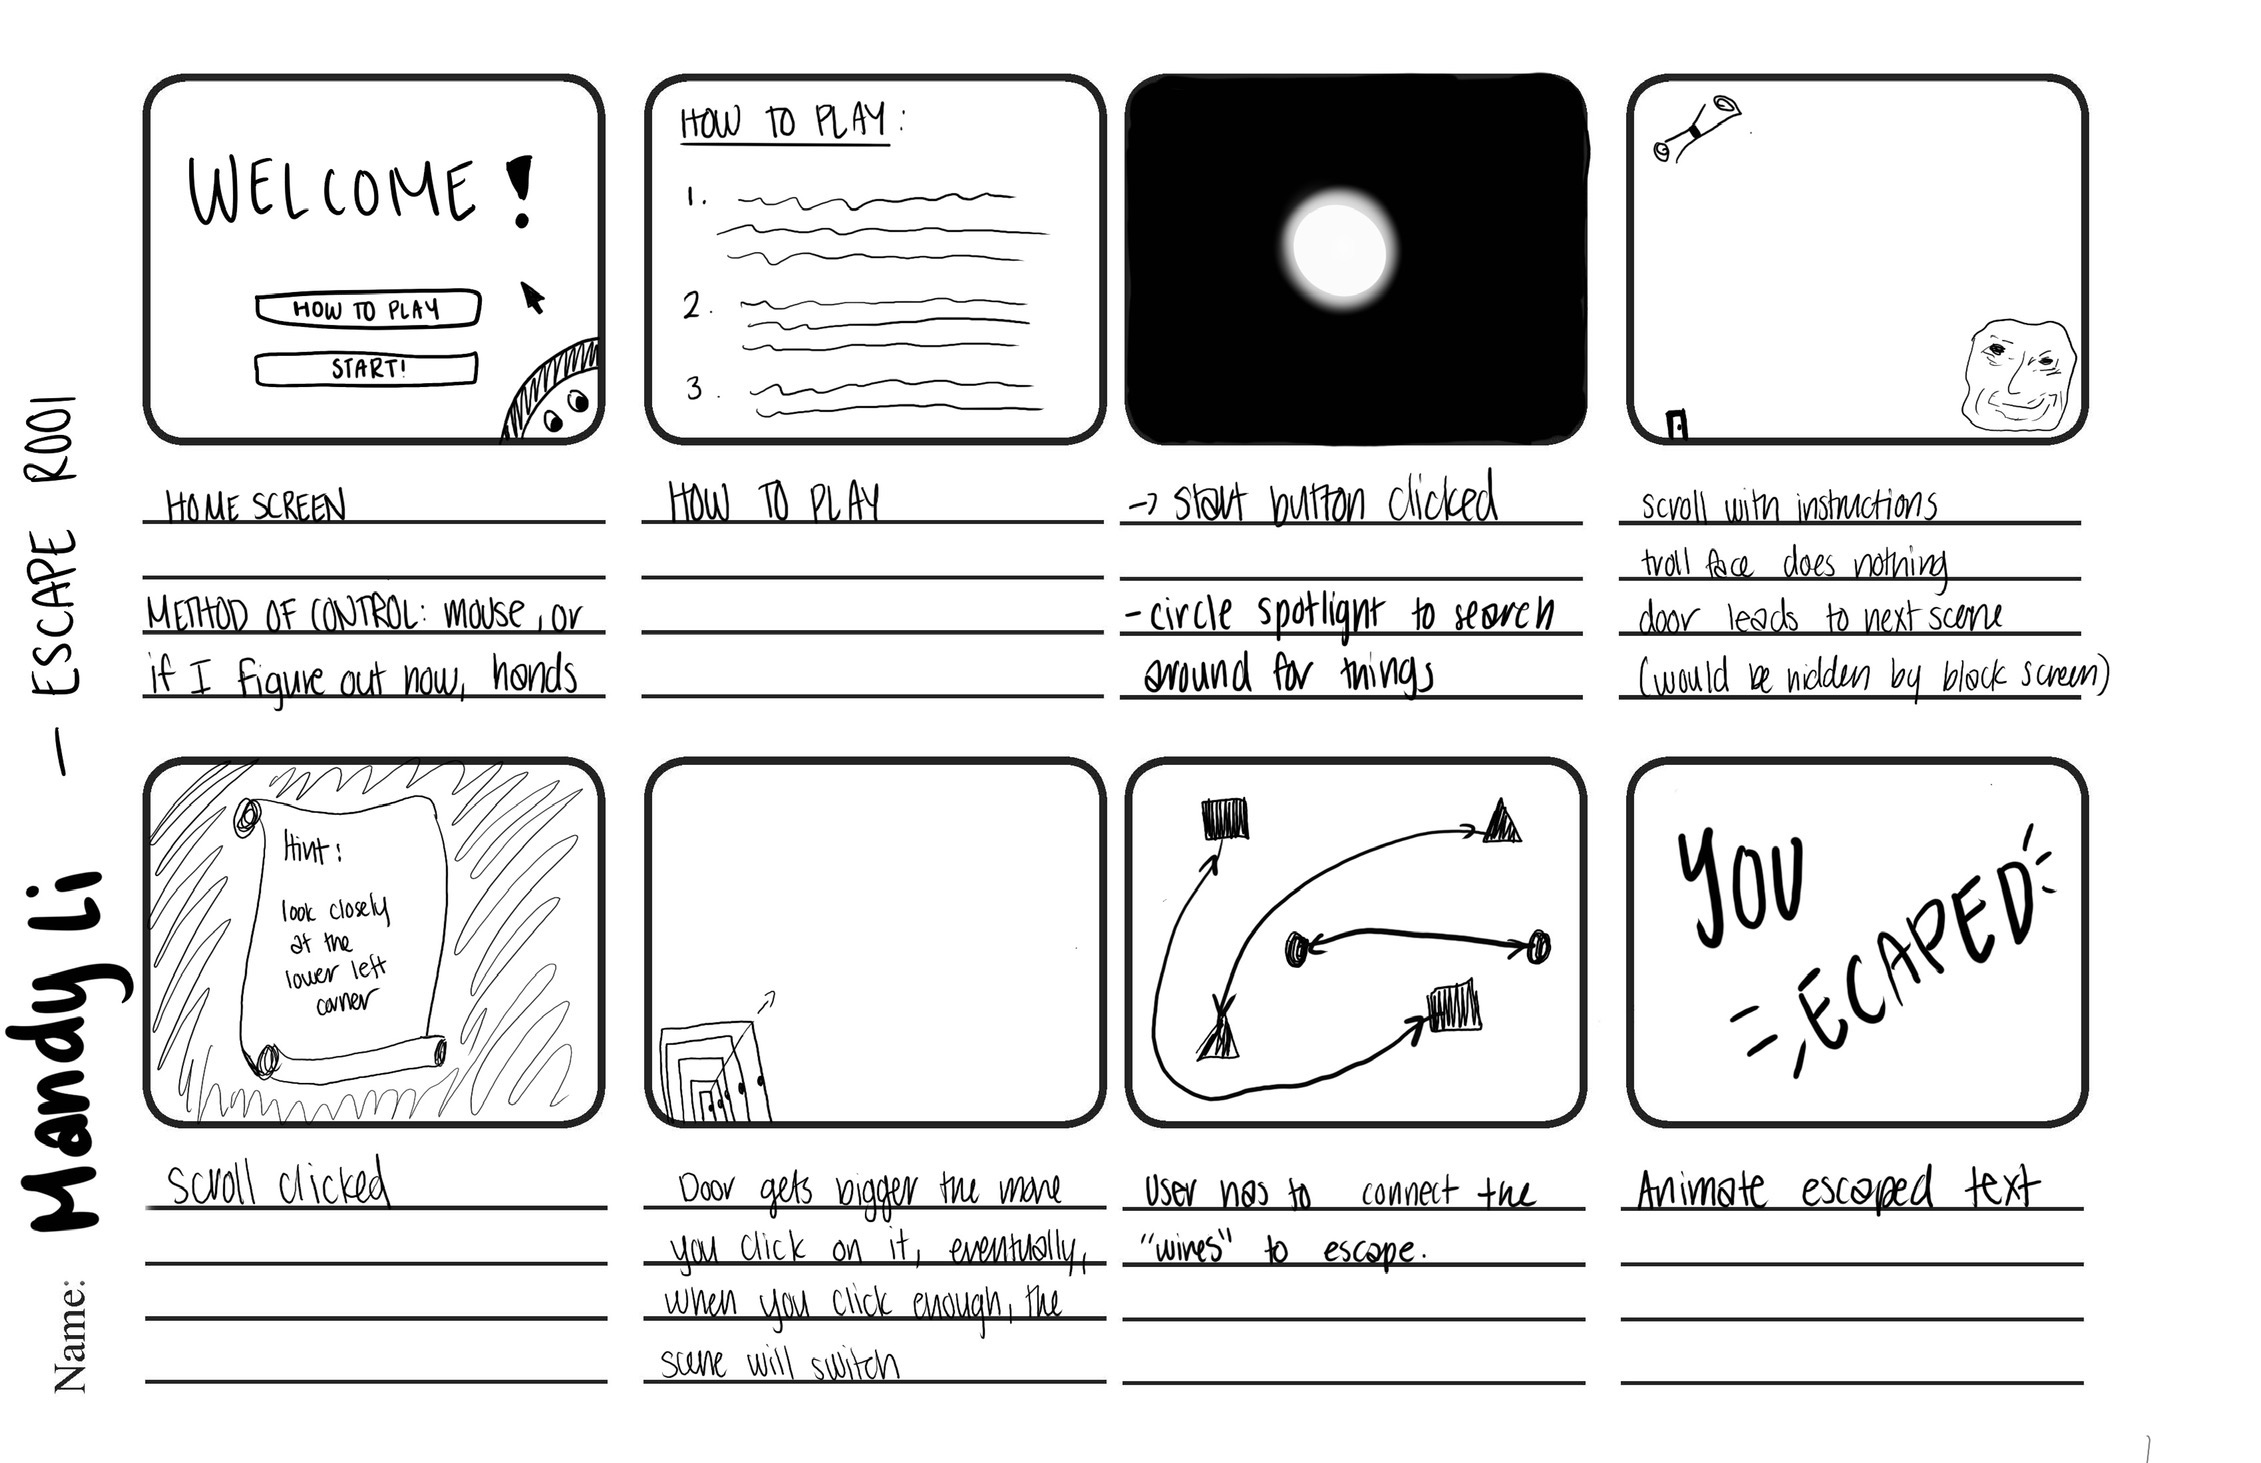 Name: Mandy Li — ESCAPE ROOM
WELCOME!
HOW TO PLAY
START!
HOME SCREEN
METHOD OF CONTROL: mouse, or
if I figure out how, hands
HOW TO PLAY:
1.
2.
3.
HOW TO PLAY
-> start button clicked
- circle spotlight to search
around for things
scroll with instructions
troll face does nothing
door leads to next scene
(would be hidden by black screen)
Hint:
look closely
at the
lower left
corner
scroll clicked
Door gets bigger the more
you click on it, eventually,
when you click enough, the
scene will switch
User has to connect the
"wires" to escape.
YOU
ECAPED
Animate escaped text